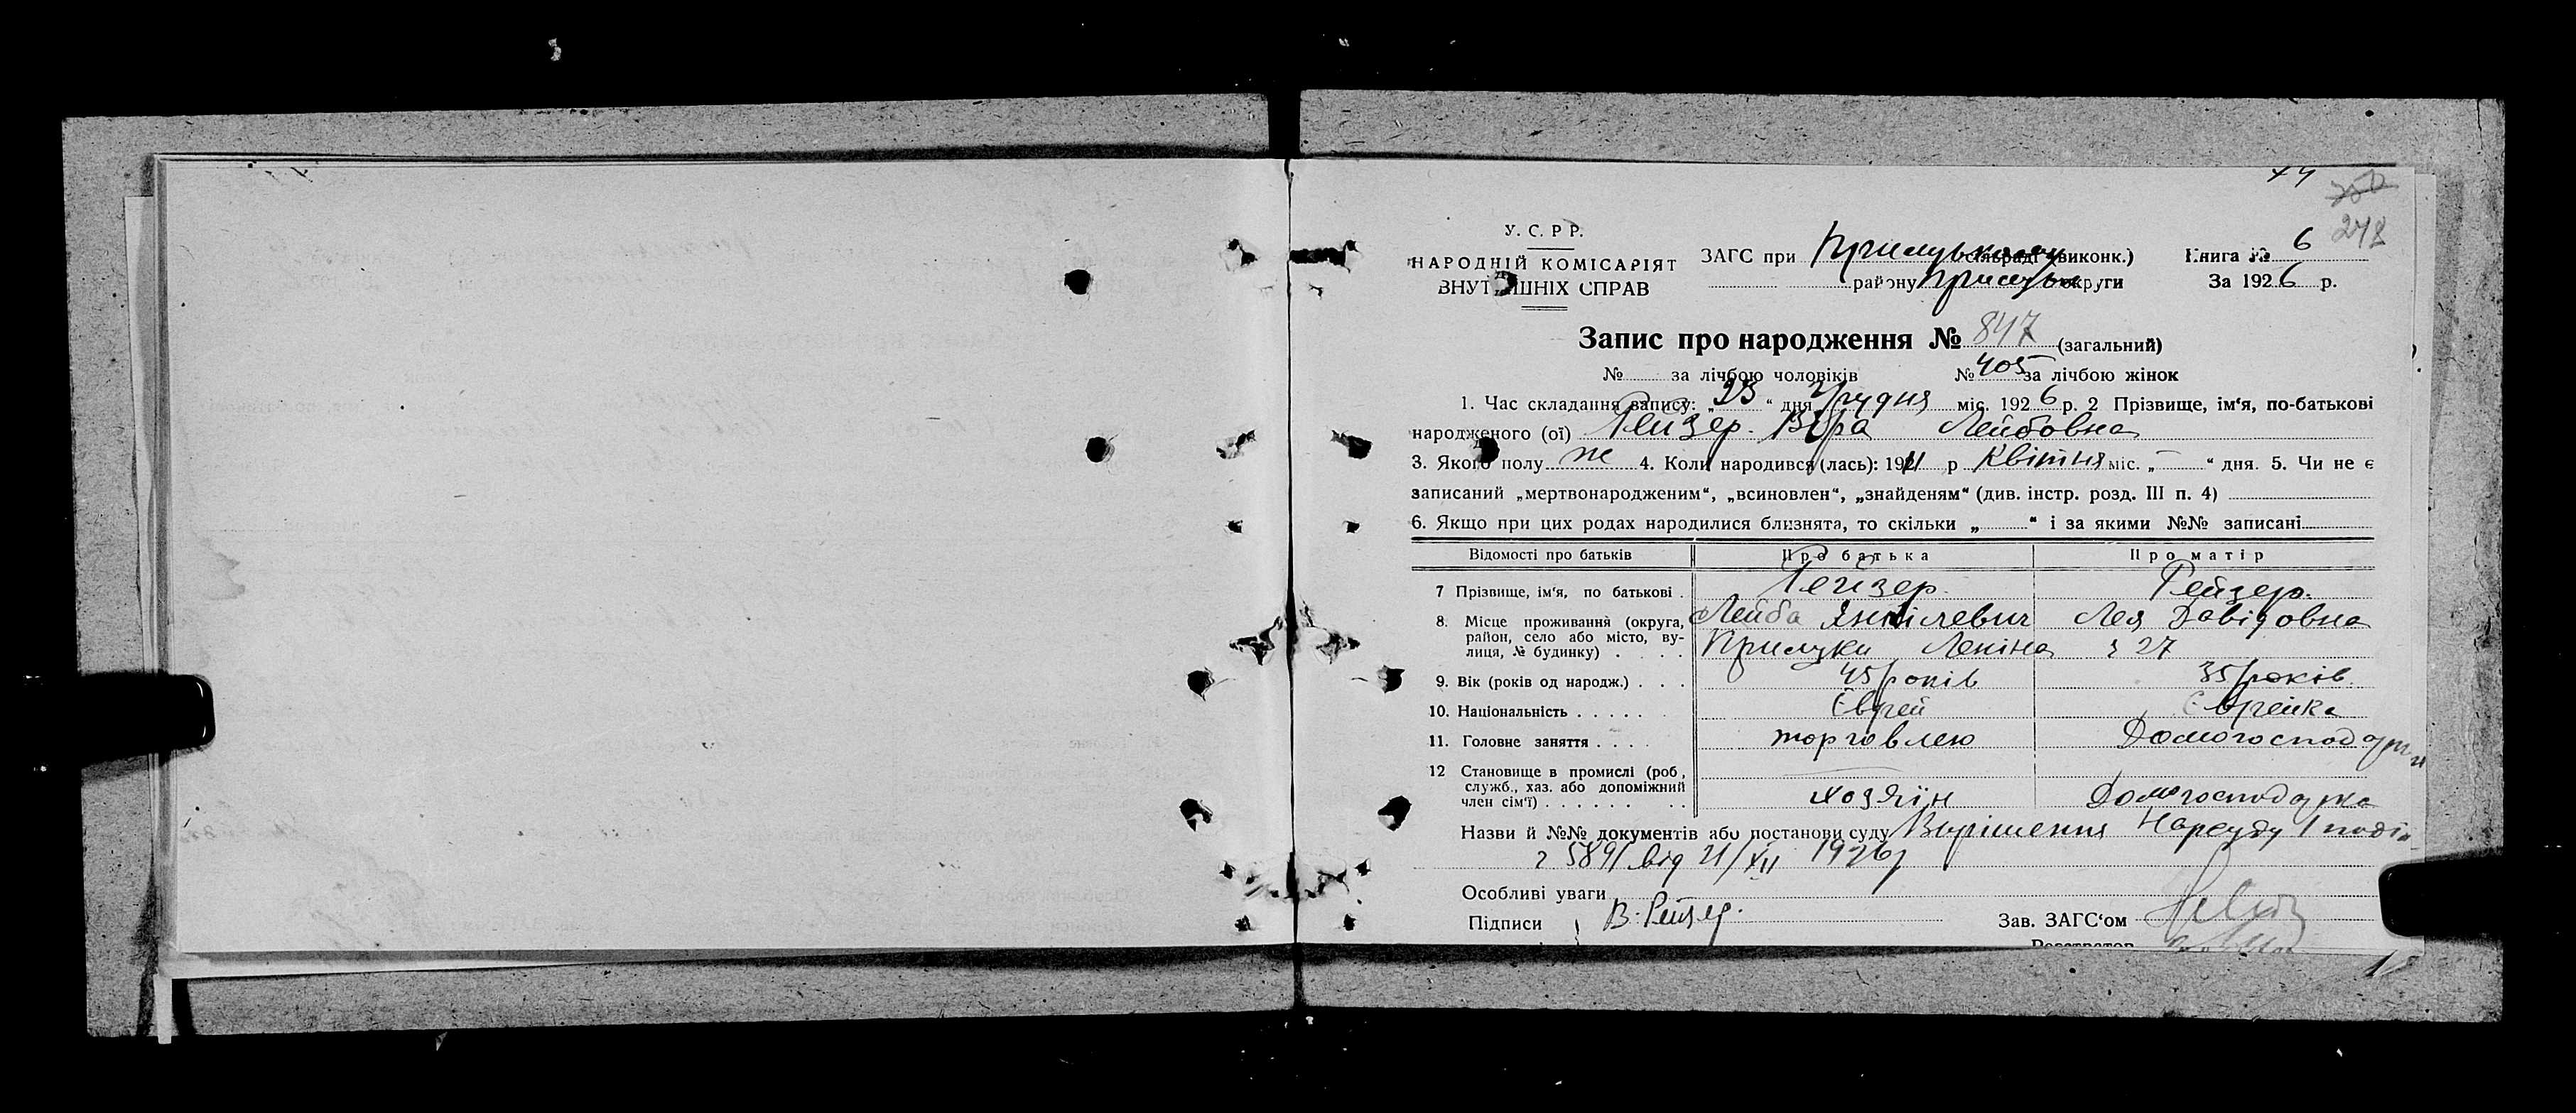 44
248
У. С. Р Р.
НАРОДНІЙ КОМІСАРІЯТ
ВНУТРІШНІХ СПРАВ
ЗАГС при Прилуцькому (виконк.) Книга № 6
району Прилуцьк округи За 1926 р.
Запис про народження № 847 (загальний)
№ за лічбою чоловіків № 405 за лічбою жінок
1. Час складання запису: „23“ дня Грудня міс. 1926 р. 2 Прізвище, ім‘я, по-батькові
народженого (ої) Рейзер. Віра Лейбовна
3. Якого полу ж 4. Коли народився (лась): 1911 р Квітня міс. „—“ дня. 5. Чи не є
записаний „мертвонародженим“, „всиновлен“, „знайденям“ (див. інстр. розд. III п. 4)
6. Якщо при цих родах народилися близнята, то скільки „ “ і за якими №№ записані
Відомості про батьків Про батька Про матір
7 Прізвище, ім‘я, по батькові . Рейзер. Рейзер.
8. Місце проживання (округа, Лейба Янкілевич Лея Давідовна
район, село або місто, ву-
лиця, № будинку) . . . . Прилуки Леніна ч 27
9. Вік (років од народж.) . . . 45 років 35 років.
10. Національність . . . . . Єврей Єврейка
11. Головне заняття . . . . торговлею Домогосподарка
12 Становище в промислі (роб,
служб., хаз. або допоміжний
член сім‘ї) . . . . . . . . хозяїн Домогосподарка
Назви й №№ документів або постанови суду Вирішення Нарсуду 1
ч 5891 від 21/XII 1926 р
Особливі уваги
Підписи В. Рейзер. Зав. ЗАГС‘ом
Реєстратор